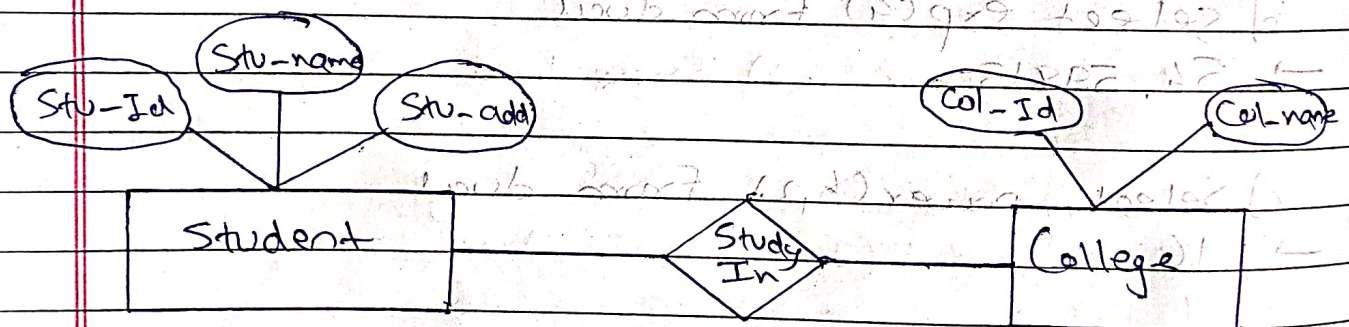 Stu-name
Stu-Id
Stu-add
Col-Id
Col-name
Student
Study
In
College